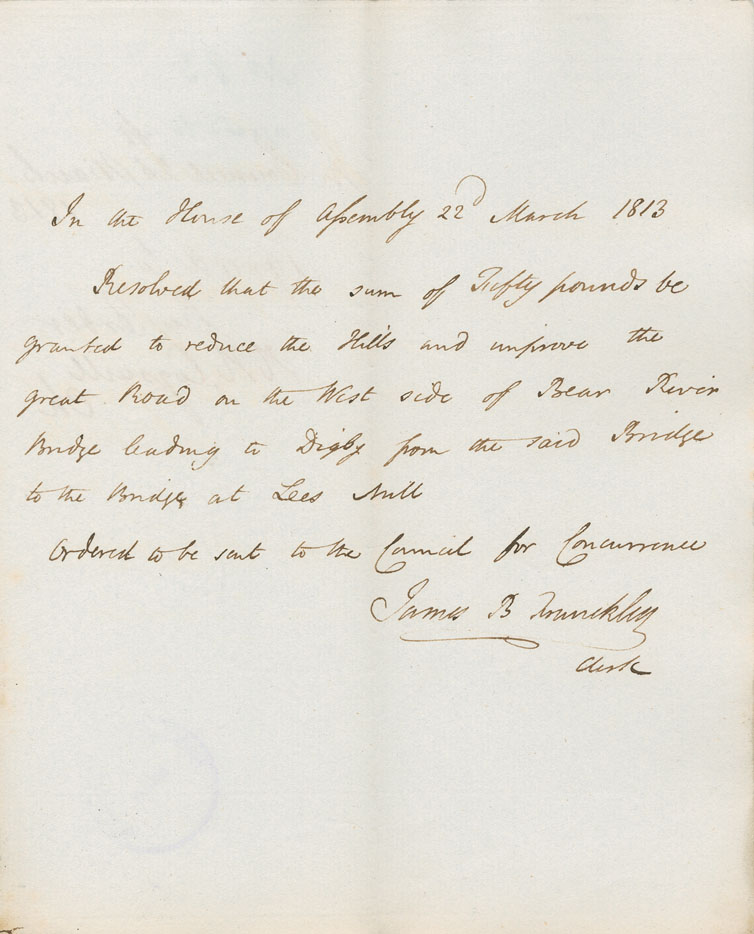 In the House of Assembly 22d March 1813
Resolved that the sum of Fifty pounds be
granted to reduce the Hills and improve the
great Road on the West side of Bear River
Bridge leading to Digby from the said Bridge
to the Bridge at Lees Mill
Ordered to be sent to the Council for Concurrence
James B Franckling
Clerk